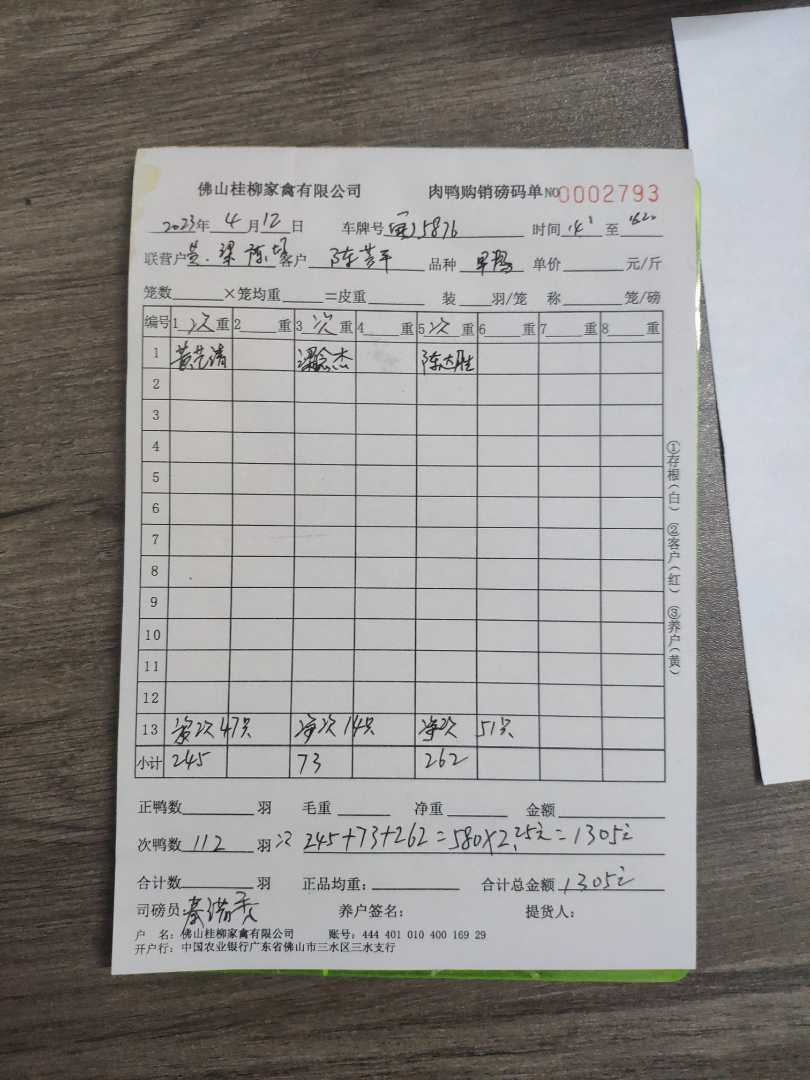 佛山桂柳家禽有限公司 肉鸭购销磅码单 NO 0002793
2023年 4月12日 车牌号 5876 时间 至
联营户 黄.梁 陈 客户 陈 平 品种 单价 元/斤
笼数 ×笼均重 =皮重 装 羽/笼 称 笼/磅
编号 1 次 重 2 重 3 次 重 4 重 5 次 重 6 重 7 重 8 重
1 黄 清 梁 杰 陈 胜
2
3
4
5
6
7
8
9
10
11
12
13 次47只 净次 14只 净次 51只
小计 245 73 262
正鸭数 羽 毛重 净重 金额
次鸭数 112 羽 245+73+262=580×2.25元=1305元
合计数 羽 正品均重: 合计总金额 1305元
司磅员: 养户签名: 提货人:
户 名: 佛山桂柳家禽有限公司 账号: 444 401 010 400 169 29
开户行: 中国农业银行广东省佛山市三水区三水支行
①存根(白) ②客户(红) ③养户(黄)